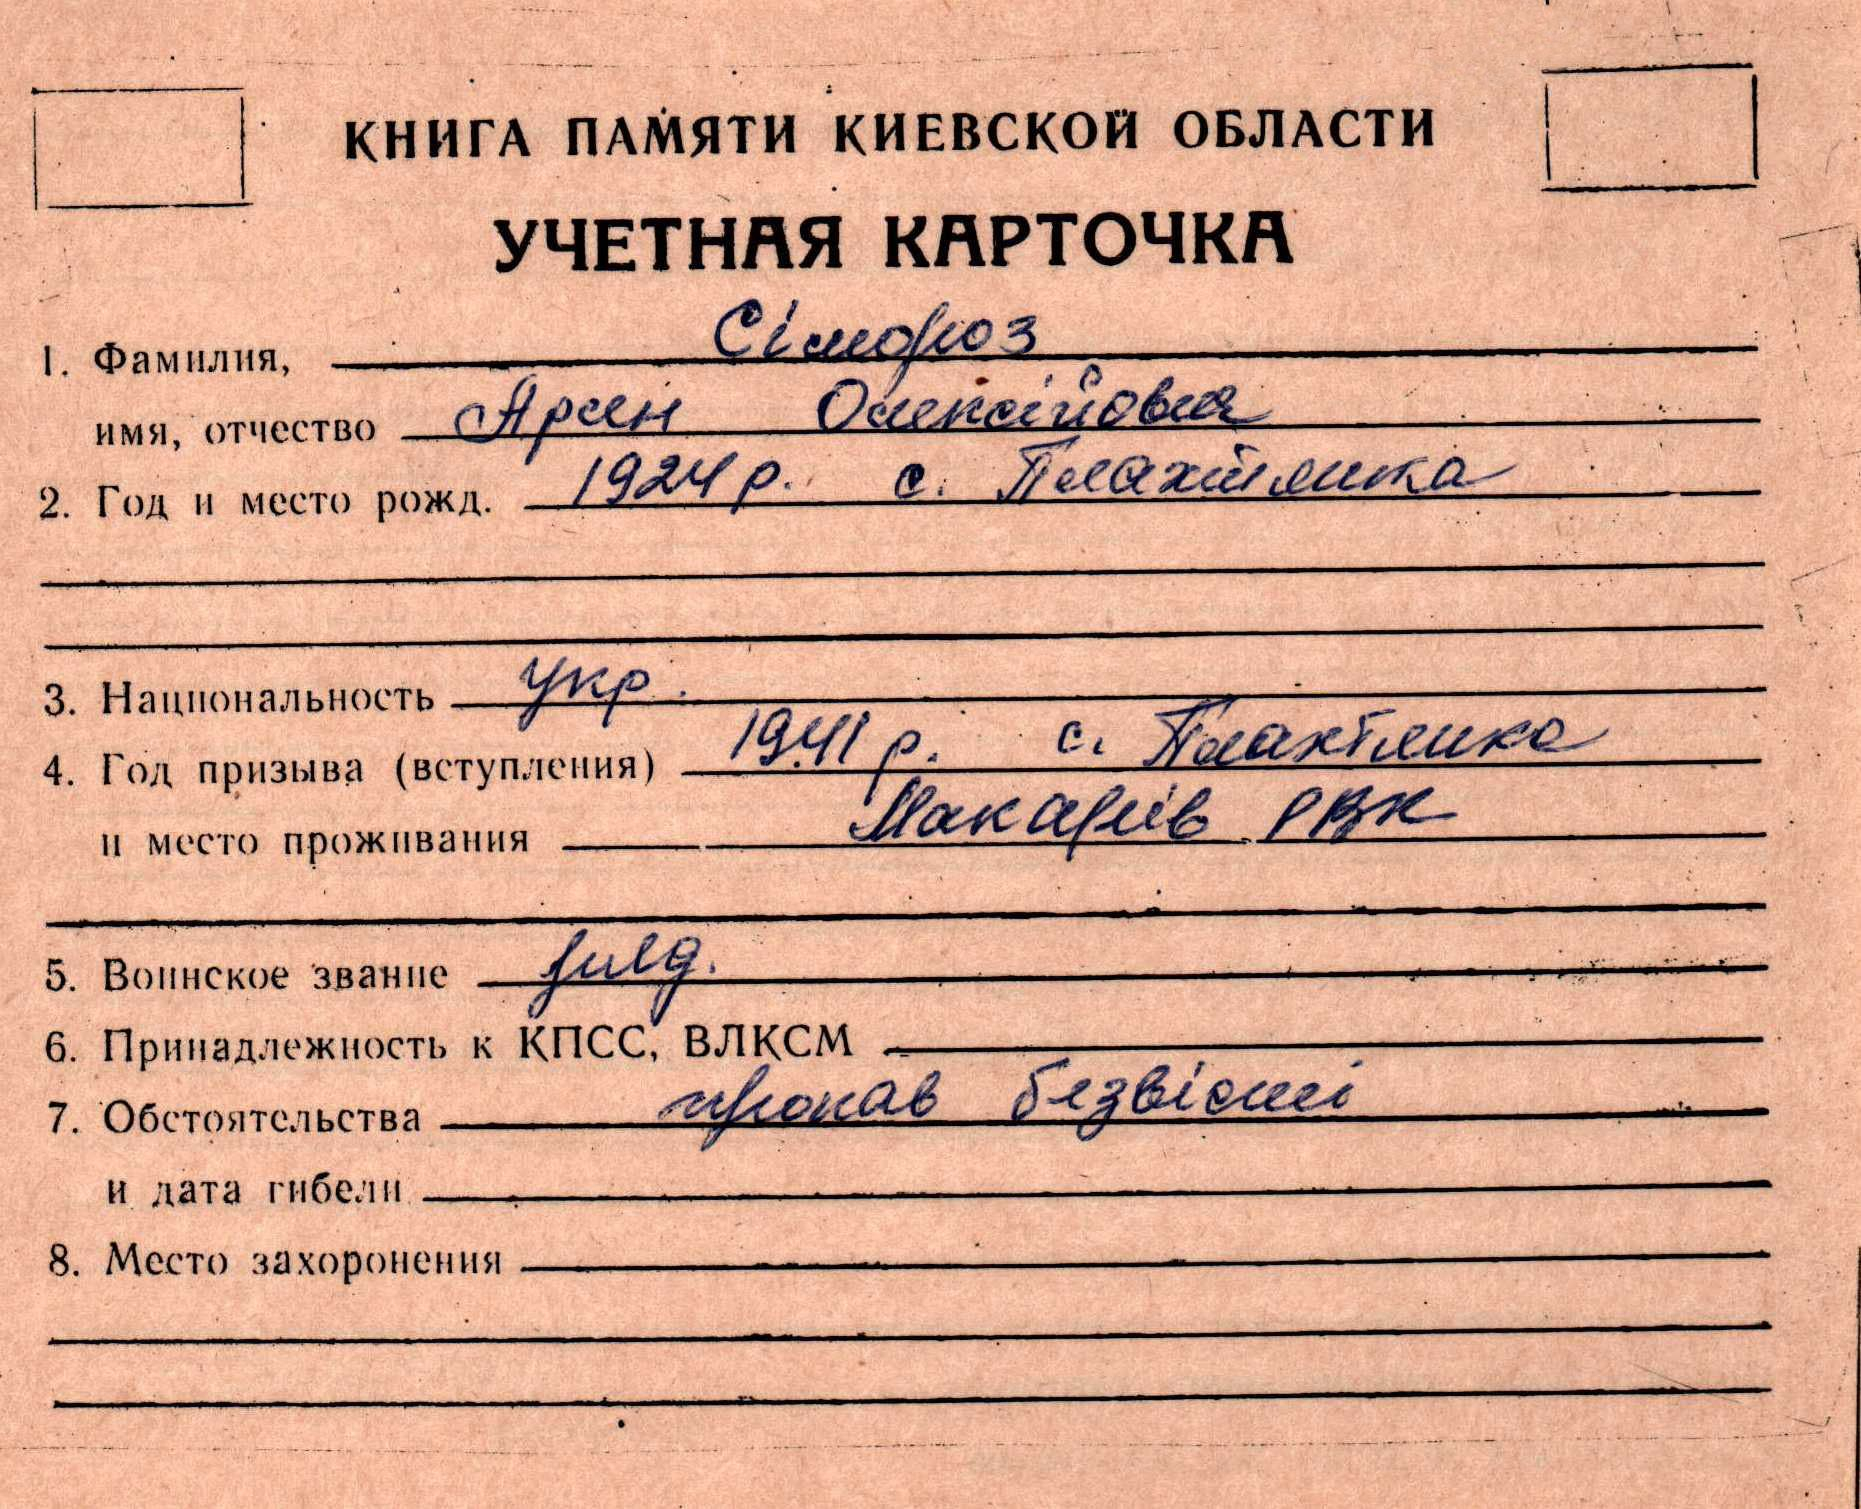 КНИГА ПАМЯТИ КИЕВСКОЙ ОБЛАСТИ
УЧЕТНАЯ КАРТОЧКА
1. Фамилия, Сімороз
имя, отчество Арсен Олексійович
2. Год и место рожд. 1924 р. с. Плахтянка
3. Национальность укр.
4. Год призыва (вступления) 1941 р. с. Плахтянка
и место проживания Макарів РВК
5. Воинское звание
6. Принадлежность к КПСС, ВЛКСМ
7. Обстоятельства пропав безвісті
и дата гибели
8. Место захоронения